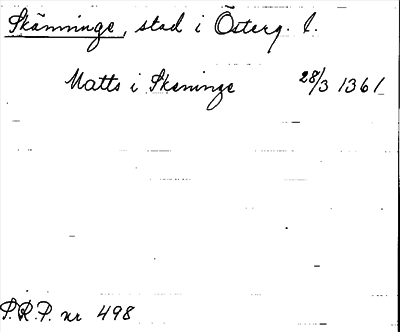 Skänninge, stad i Österg. l.
Matts i Skeninge 28/3 1361
S.R.P. nr 498